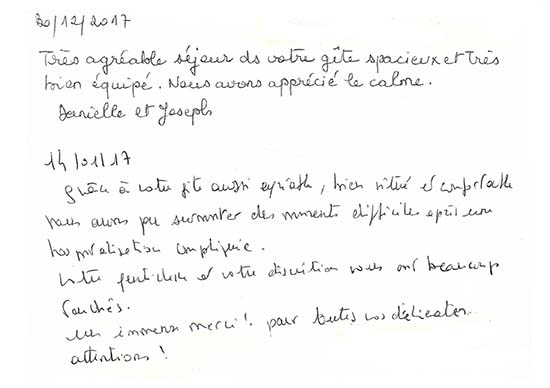 30/12/2017
Très agréable séjour ds votre gîte spacieux et très
bien équipé. Nous avons apprécié le calme.
Danielle et Joseph
14/01/17
Grâce à votre gîte aussi agréable, bien situé et confortable
nous avons pu surmonter des moments difficiles après une
hospitalisation compliquée.
Votre gentillesse et votre discrétion nous ont beaucoup
touchés.
Un immense merci ! pour toutes vos délicates
attentions !